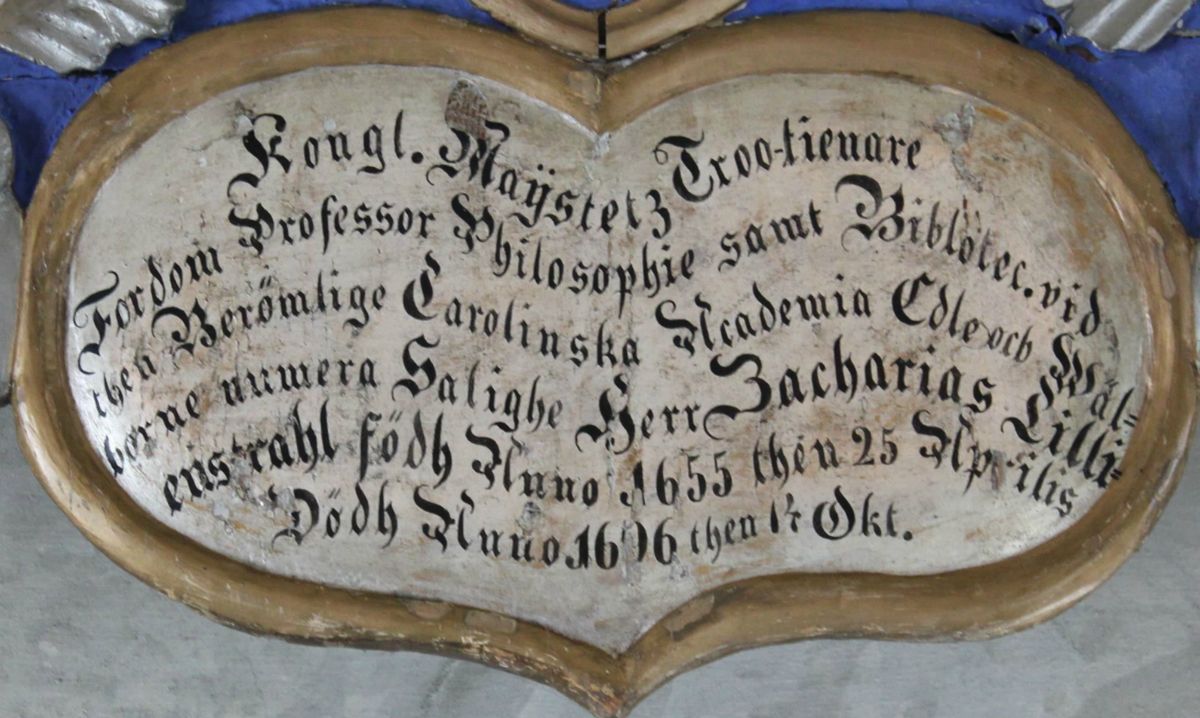 Kongl. Maÿstetz Troo-tienare
Fordom Professor Philosophie samt Biblötec. vid
then Berömlige Carolinska Academia Edle och Wäl-
borne numera Salighe Herr Zacharias Lilli-
enstrahl födh Anno 1655 then 25 Aprilis
Dödh Anno 1696 then Okt.